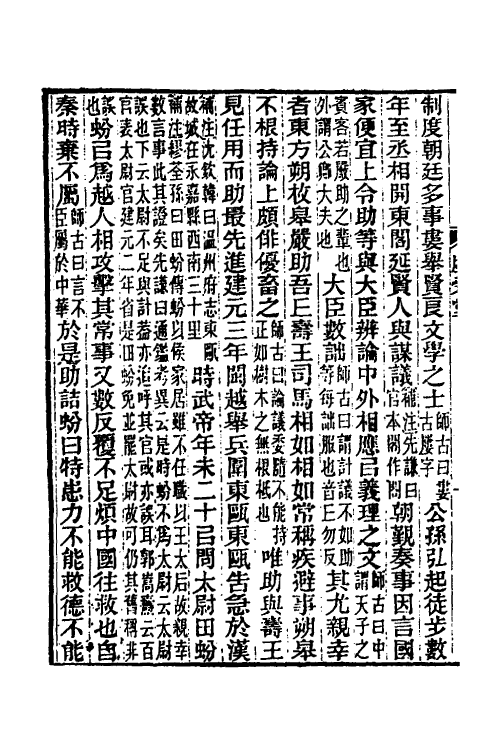 制度朝廷多事婁舉賢良文學之士師古曰婁古屢字公孫弘起徒步數
年至丞相開東閤延賢人與謀議補注先謙曰官本閤作閣朝覲奏事因言國
家便宜上令助等與大臣辨論中外相應㠯義理之文師古曰中謂天子之
賓客若嚴助之輩也外謂公卿大夫也大臣數詘師古曰謂計議不如助等每詘服也音丘勿反其尤親幸
者東方朔枚皋嚴助吾丘壽王司馬相如相如常稱疾避事朔皋
不根持論上頗俳優畜之師古曰論議委隨不能持正如樹木之無根柢也唯助與壽王
見任用而助最先進建元三年閩越舉兵圍東甌東甌告急於漢
補注沈欽韓曰溫州府志東甌故城在永嘉縣西南三十里時武帝年未二十㠯問太尉田蚡
補注繆荃孫曰田蚡傳蚡以侯家居雖不任職以王太后故親幸數言事此其證矣先謙曰通鑑考異云是時蚡不為太尉
誤也下云太尉不足與計蓋亦追呼其官或亦誤耳郭嵩燾云百官表太尉官建元二年省是田蚡免並罷太尉故可仍其舊稱非
誤也蚡㠯為越人相攻擊其常事又數反覆不足煩中國往救也自
秦時棄不屬師古曰言不臣屬於中華於是助詰蚡曰特患力不能救德不能